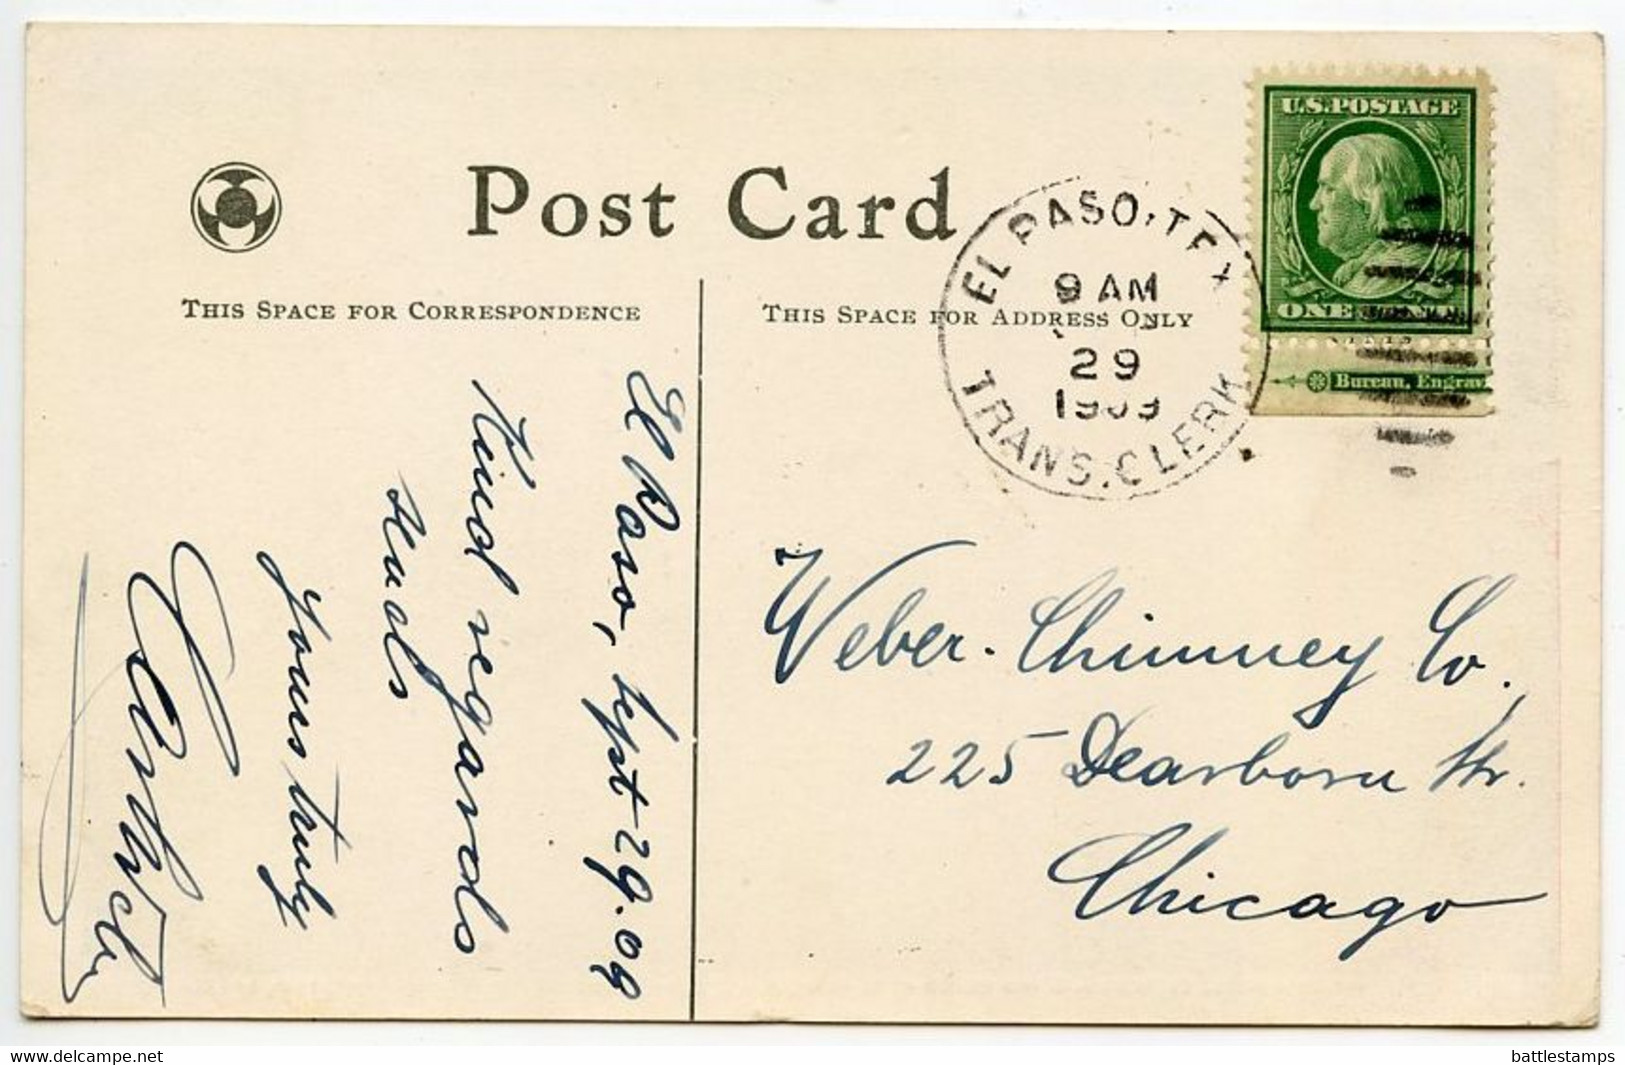 Post Card
THIS SPACE FOR CORRESPONDENCE
THIS SPACE FOR ADDRESS ONLY
EL PASO, TEX
9 AM
29
1909
TRANS. CLERK
U.S. POSTAGE
ONE CENT
Bureau, Engrav
El Paso, Sept 29. 09
Kind regards
Yours truly
Weber. Chimney Co.
225 Dearborn Str.
Chicago
delcampe.net
battlestamps